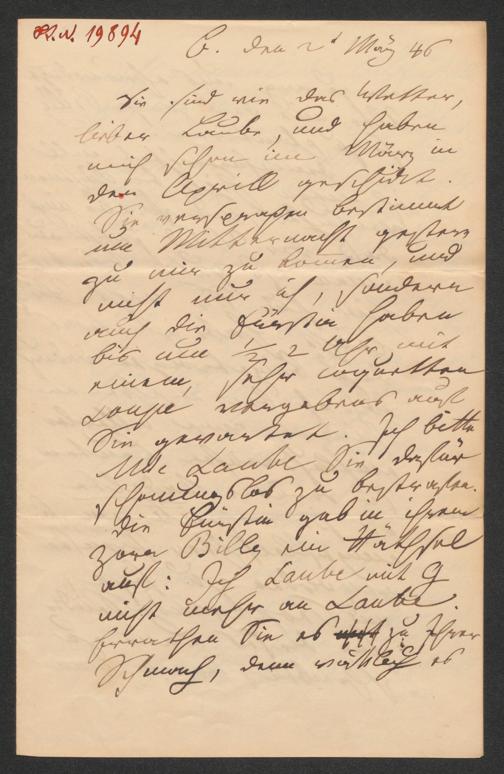 H.I.N. 19894
B. den 2t März 46
Sie sind wie das Wetter,
lieber Laube, und haben
mich schon im März in
den Aprill geschickt.
Sie versprachen bestimmt
um Mitternacht gestern
zu mir zu komen, und
nicht nur ich, sondern
auch die Fürstin haben
bis um 1/2 2 Uhr mit
einem, sehr coquetten
Soupé vergebens auf
Sie gewartet. Ich bitte
Mde Laube Sie dafür
schonungslos zu bestrafen.
Die Fürstin gab in ihrem
Zorn Billy ein Räthsel
auf: Ich Laube mit G
nicht mehr an Laube.
Errathen Sie es zu Ihrer
Schmach, denn wirklich es